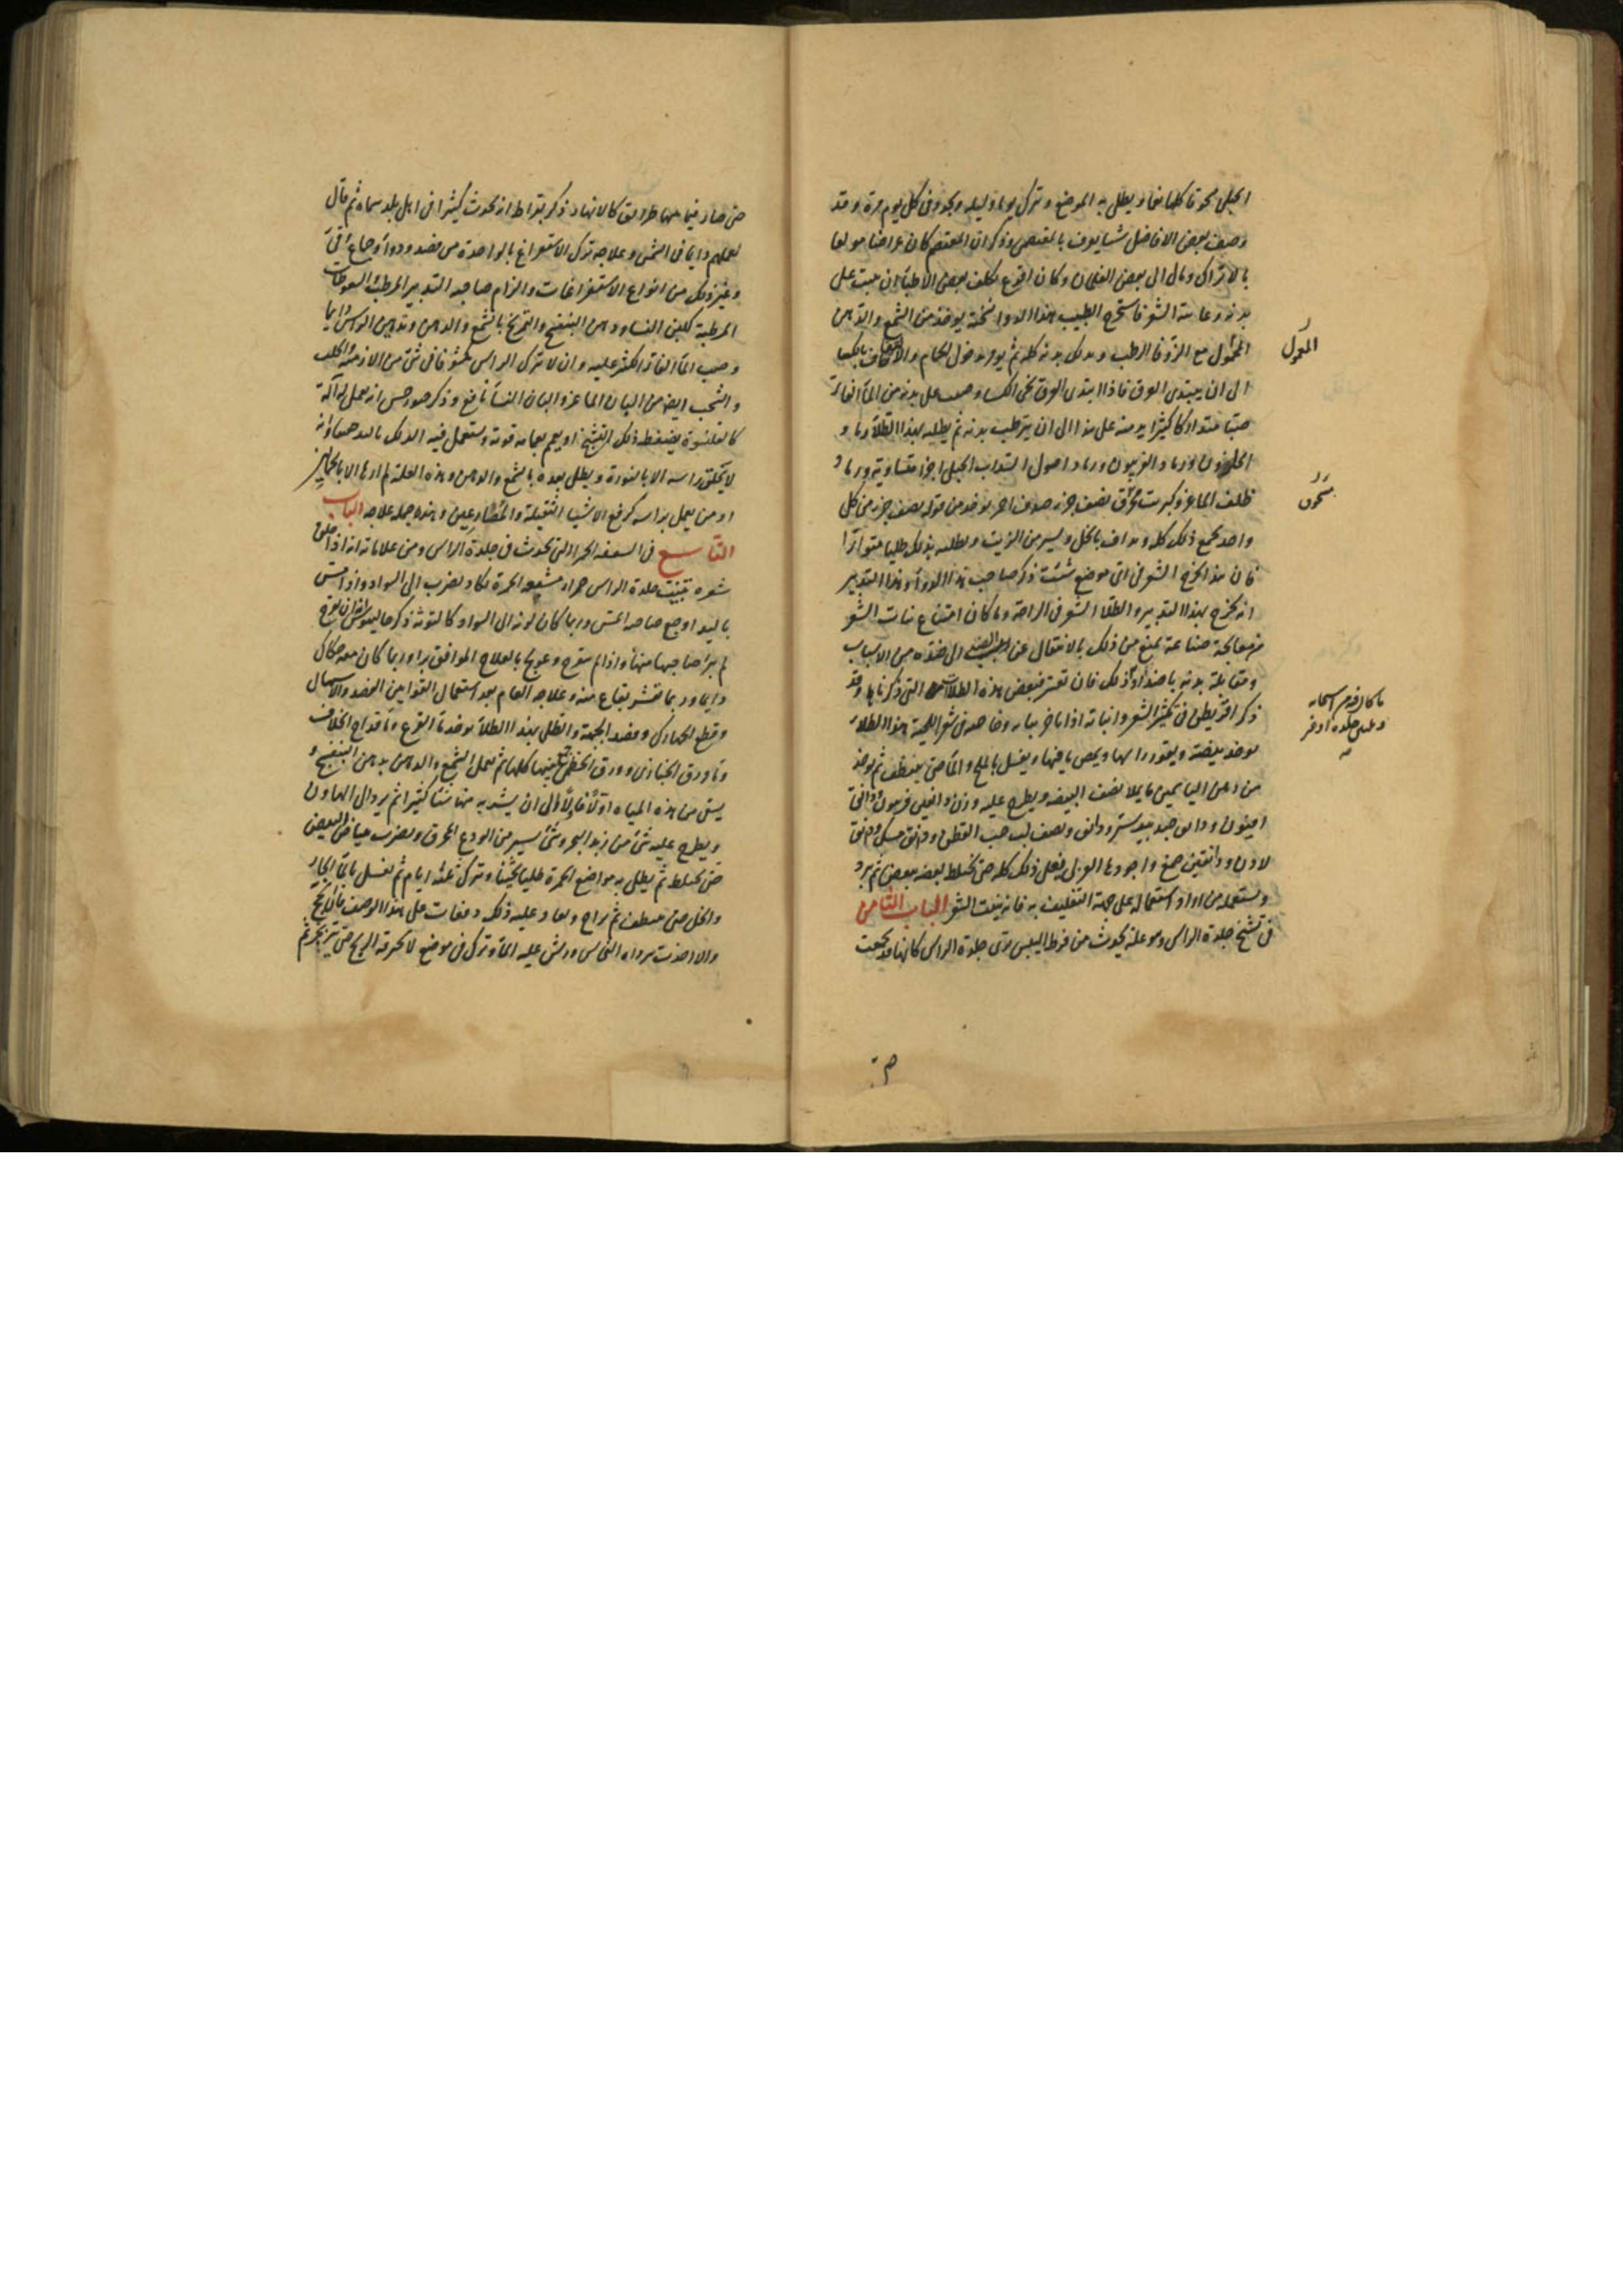 الجبلى محرقا كلها نقاد يطلى به الموضع و يترك يوما وليله ويجدد فى كل يوم مرة وقد
وصف بعض الافاضل شيا يعرف بالمعتصمى وذكر ان المعتصم كان عرافنا مولعا
بالاتراك ومال الى بعض الغلمان وكان اقرع فكلف بعض الاطباء ان ينبت على
بدنه وعانته الشعر فاستخرج الطبيب هذا الدواء نسخته يوخذ من الشمع والدهن
المحمول مع الزوفا الرطب ويدلك بدنه كله ثم يومر بدخول الحمام و بالكسا
الى ان يبتدى العرق فاذا ابتدى العرق نحى الكسا وصب على بدنه من الماء الفاتر
صبا متداركا كثيرا يدمنه على هذا الى ان يترطب بدنه ثم يطليه بهذا الطلاء رماد
الحلزون ورماد الفربيون ورماد اصول السداب الجبلى اجزا متساوية ورماد
ظلف الماعز وكبريت محرق نصف جزء صدف احمر يوخذ من قوله نصف جزء من كل
واحد يجمع ذلك كله ويداف بالخل ويسير من الزيت ويطليه بذلك طليا متواترا
فان هذا يخرج الشعر فى اى موضع شئت ذكر صاحب هذا الدواء وهذا التدبير
انه يخرج بهذا التدبير والطلا الشعر فى الراحة وما كان امتناع نبات الشعر
من معالجة صناعة تمنع من ذلك بالانتقال عن الى ضده من الاسباب
ومقابلة بدنه باضداد ذلك فان تعسر فبعض هذه الطلاات التى ذكرناها وقد
ذكر اقريطن فى تكثير الشعر وانباته اذا تاخر نباته وخاصه فى شعر اللحية هذا الطلاء
يوخذ بيضة ويقور راسها ويمص ما فيها ويغسل بالملح والماء حتى ينظف ثم يوخذ
من دهن الياسمين ما يملا نصف البيضه ويطرح عليه وزن دانقين فربيون ودانق
افيون ودانق جندبيدستر ودانق ونصف لب حب القطن ودانق مسك ودانق
لادن ودانقين صمغ واجودها العربى يغلى ذلك كله حتى يختلط بعضه ببعض ثم يبرد
ويستعمله من اراد استعماله على جهة التغليف به فانه ينبت الشعر الباب الثامن
فى تشنج جلدة الراس وهو علة يحدث من فرط اليبس ترى جلدة الراس كانها قد جمعت
المحمول
محرق
حتى صار فيما بينها طرايق كالانهار ذكر بقراط انه يحدث كثيرا فى اهل بلد سماه ثم قال
لعملهم دايما فى الشمس وعلاجه ترك الاستفراغ بالواحدة من فصد ودواء وجماع وقئ
وغير ذلك من انواع الاستفراغات والزام صاحبه التدبير المرطب والسعوطات
المرطبة كلبن النسا ودهن البنفسج والتمريخ بالشمع والدهن وتدهين الراس دايما
وصب الماء الفاتر الكثير عليه وان لا يترك الراس مكشوفا فى شئ من الازمنه والحلب
والشخب ايضا من البان الماعز والبان النسا نافع وذكر جورجس انه يعمل له آلة
كالقلنسوة يضغط ذلك التشنج او يعمم بعمامه قوية ويستعمل فيه الدلك باليد
لا يحلق راسه الا بالنورة ويطلى بعده بالشمع والدهن وهذه العلة لم ارها الا بالحمالين
او من يعمل براسه كرفع الاشيا الثقيلة والمصارعين وهذه جملة علاجه الباب
التاسع فى السعفه الحمرا التى يحدث فى جلدة الراس ومن علاماته انه اذا حلق
شعره تبينت جلدة الراس حمراء مشبعه الحمرة تكاد تضرب الى السواد واذا مس
باليد اوجع صاحبه المس وربما كان لونه الى السواد كالتوثة ذكر جالينوس انه ان تقرح
لم يبرا صاحبها منها واذا لم يتقرح وعولج بالعلاج الموافق برا وربما كان معه حكاك
دايما وربما تقشر بقاع منه وعلاجه العام بعد استعمال القوانين الفصد والاسهال
وقطع الجهارك وفصد الجبهة والطلى بهذا الطلاء يوخذ ماء القرع وماء قداح الخلاف
وماء ورق الخبازى وورق الخطمى كلها ثم يعمل الشمع والدهن بدهن البنفسج و
يسقى من هذه المياه اولا فاولا الى ان يشربه منها شيا كثيرا ثم يرد الى الهاون
ويطرح عليه شئ من زبد البحر وشئ يسير من الودع المحرق ويضرب ببياض البيض
حتى يختلط ثم يطلى به مواضع الحمرة طليا ثخينا ويترك ثلثه ايام ثم تغسل بالماء الحار
والخل حتى ينظف ثم يراح ويعاد عليه ذلك دفعات على هذا الوصف فان نجح
والا اخذت برادة النحاس ورش عليه الماء وترك فى موضع لا تحرقه الريح حتى يتزنجر ثم